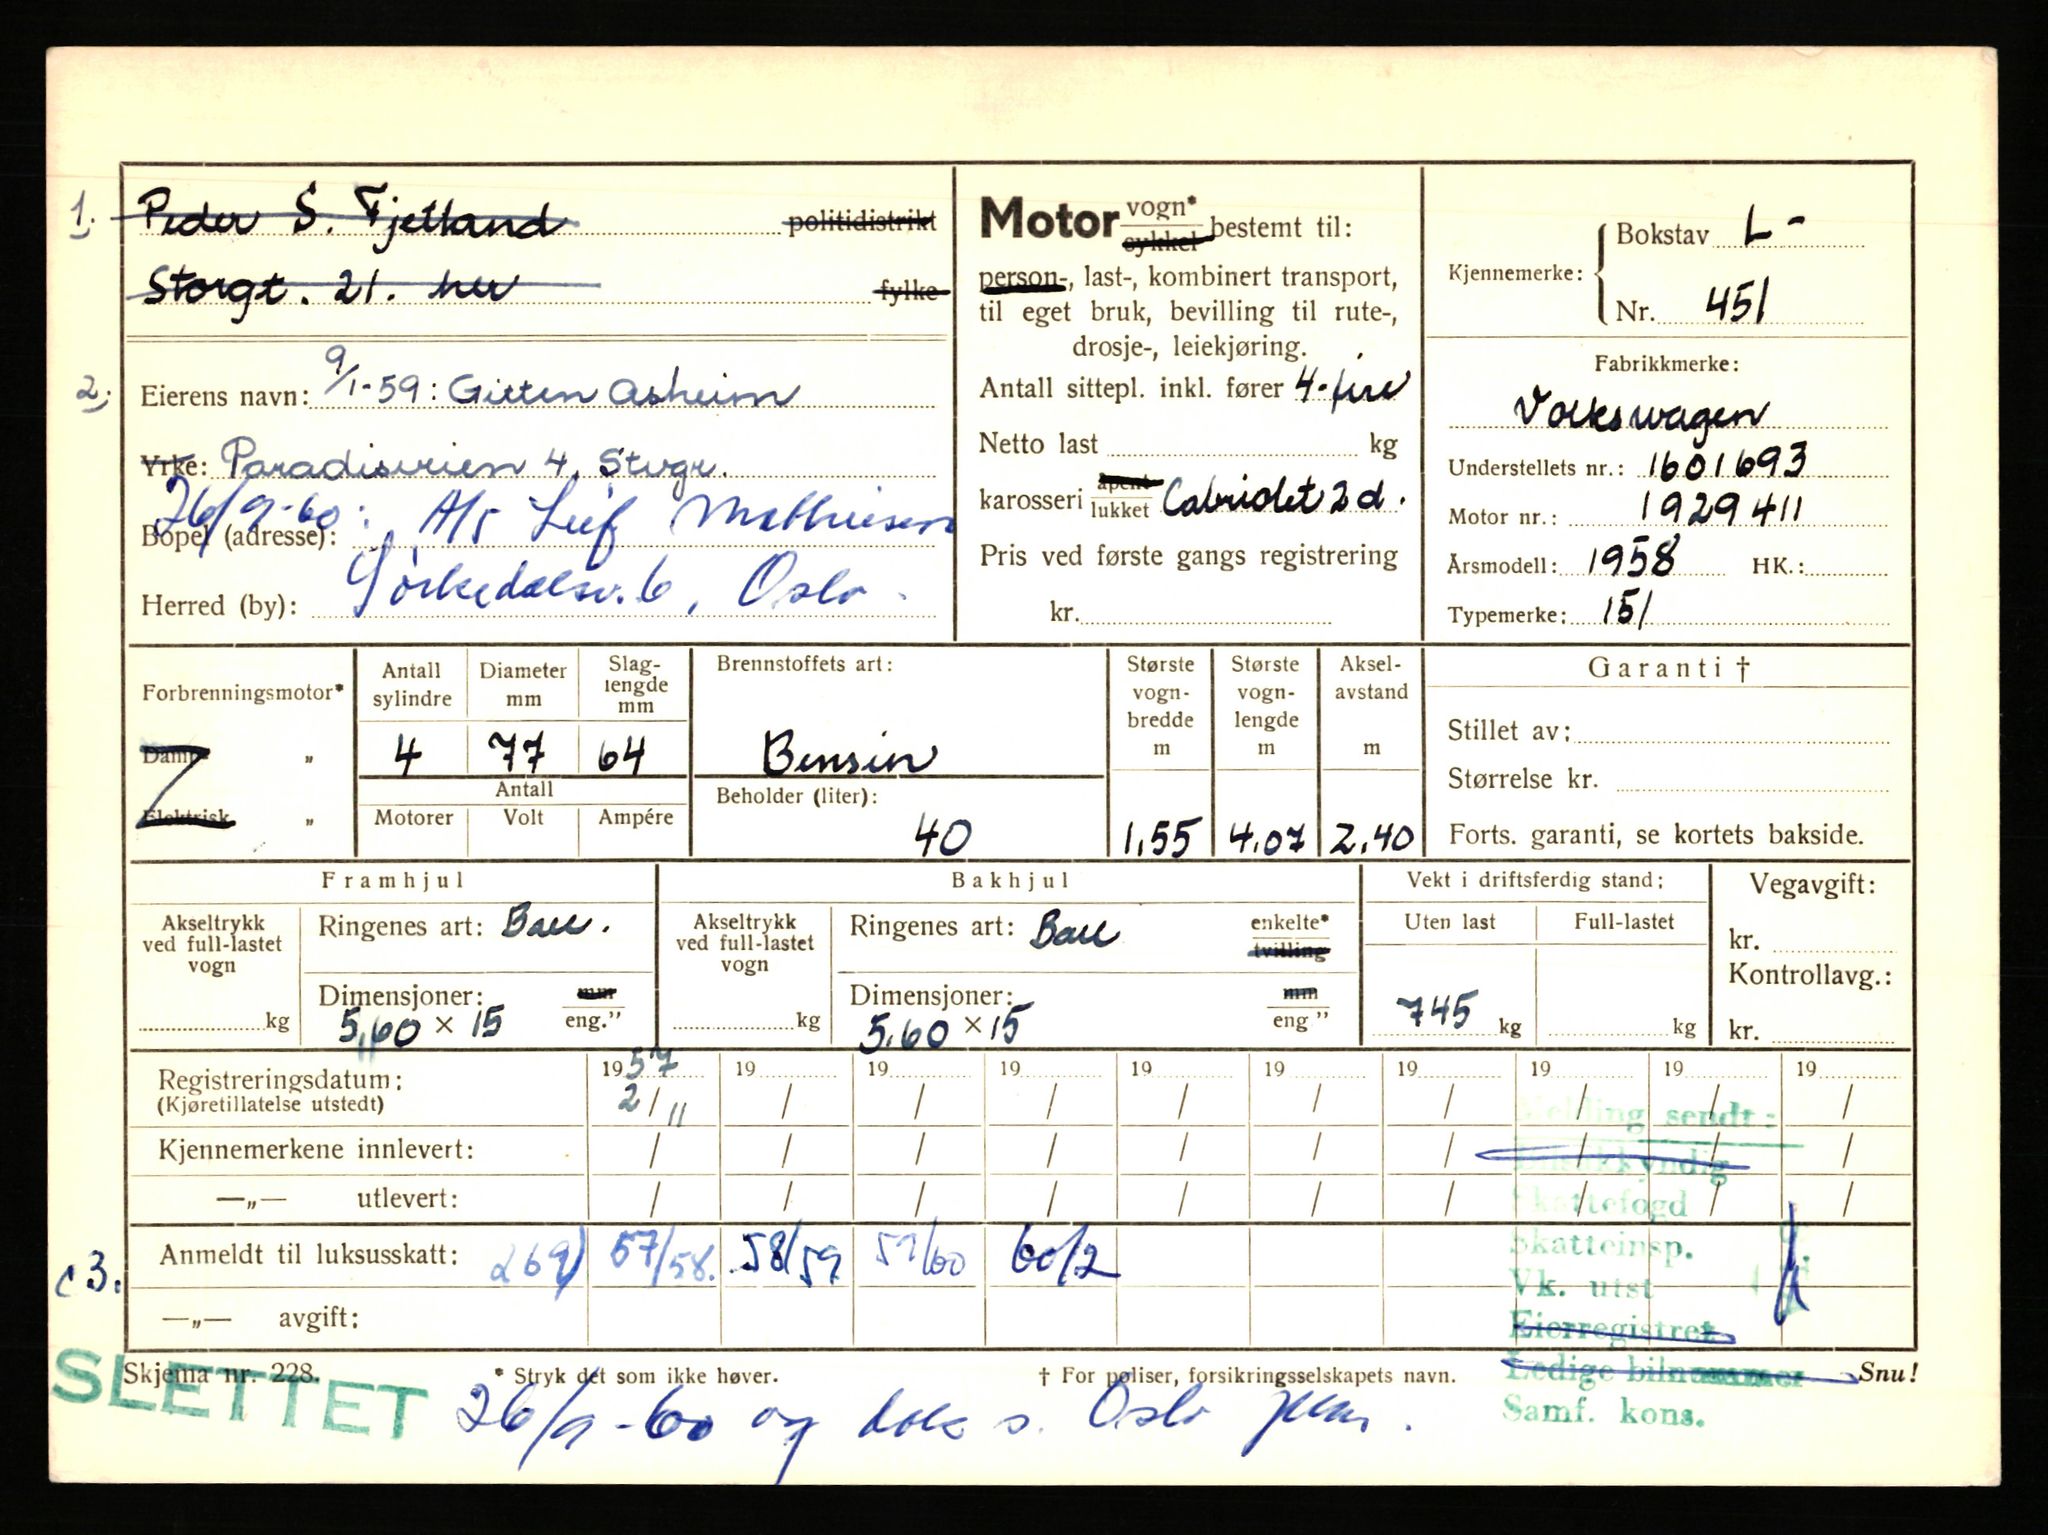 1. Peder S. Fjetland politidistrikt
Storgt. 21. her fylke
2. Eierens navn: 9/1-59: Gitten Asheim
Yrke: Paradisveien 4, Stvgr.
26/9-60: A/s Leif Mathiesen
Bopel (adresse):
Sörkedalsv. 6, Oslo.
Herred (by):
Motor vogn* sykkel bestemt til:
person-, last-, kombinert transport,
til eget bruk, bevilling til rute-,
drosje-, leiekjøring.
Antall sittepl. inkl. fører 4-fire
Netto last kg
karosseri åpent lukket Cabriolet 2 d.
Pris ved første gangs registrering
kr.
Kjennemerke: Bokstav L-
Nr. 451
Fabrikkmerke:
Volkswagen
Understellets nr.: 1601693
Motor nr.: 1929411
Årsmodell: 1958 HK.:
Typemerke: 151
Forbrenningsmotor*
Damp- „
Elektrisk „
Antall sylindre 4
Diameter mm 77
Slag-lengde mm 64
Antall
Motorer Volt Ampére
Brennstoffets art:
Bensin
Beholder (liter):
40
Største vogn-bredde m 1,55
Største vogn-lengde m 4.07
Aksel-avstand m 2,40
Garanti †
Stillet av:
Størrelse kr.
Forts. garanti, se kortets bakside.
Framhjul
Akseltrykk ved full-lastet vogn kg
Ringenes art: Ball.
Dimensjoner: mm
5,60 × 15 eng.”
Bakhjul
Akseltrykk ved full-lastet vogn kg
Ringenes art: Ball enkelte* tvilling
Dimensjoner: mm
5.60 × 15 eng ”
Vekt i driftsferdig stand:
Uten last Full-lastet
745 kg kg
Vegavgift:
kr.
Kontrollavg.:
kr.
Registreringsdatum: 1957 19 19 19 19 19 19 19 19 19
(Kjøretillatelse utstedt) 2/11 / / / / / / / / /
Kjennemerkene innlevert: / / / / / / / / / /
—„— utlevert: / / / / / / / / / /
Anmeldt til luksusskatt: 269) 57/58. 58/59. 59/60 60/2
3.
—„— avgift:
Melding sendt:
Bilsakkyndig
Skattefogd
Skatteinsp.
Vk. utst
Eierregistret
Ledige bilnummer
Samf. kons.
Skjema nr. 228. * Stryk det som ikke høver. † For poliser, forsikringsselskapets navn. Snu!
SLETTET 26/9-60 og dok s. Oslo